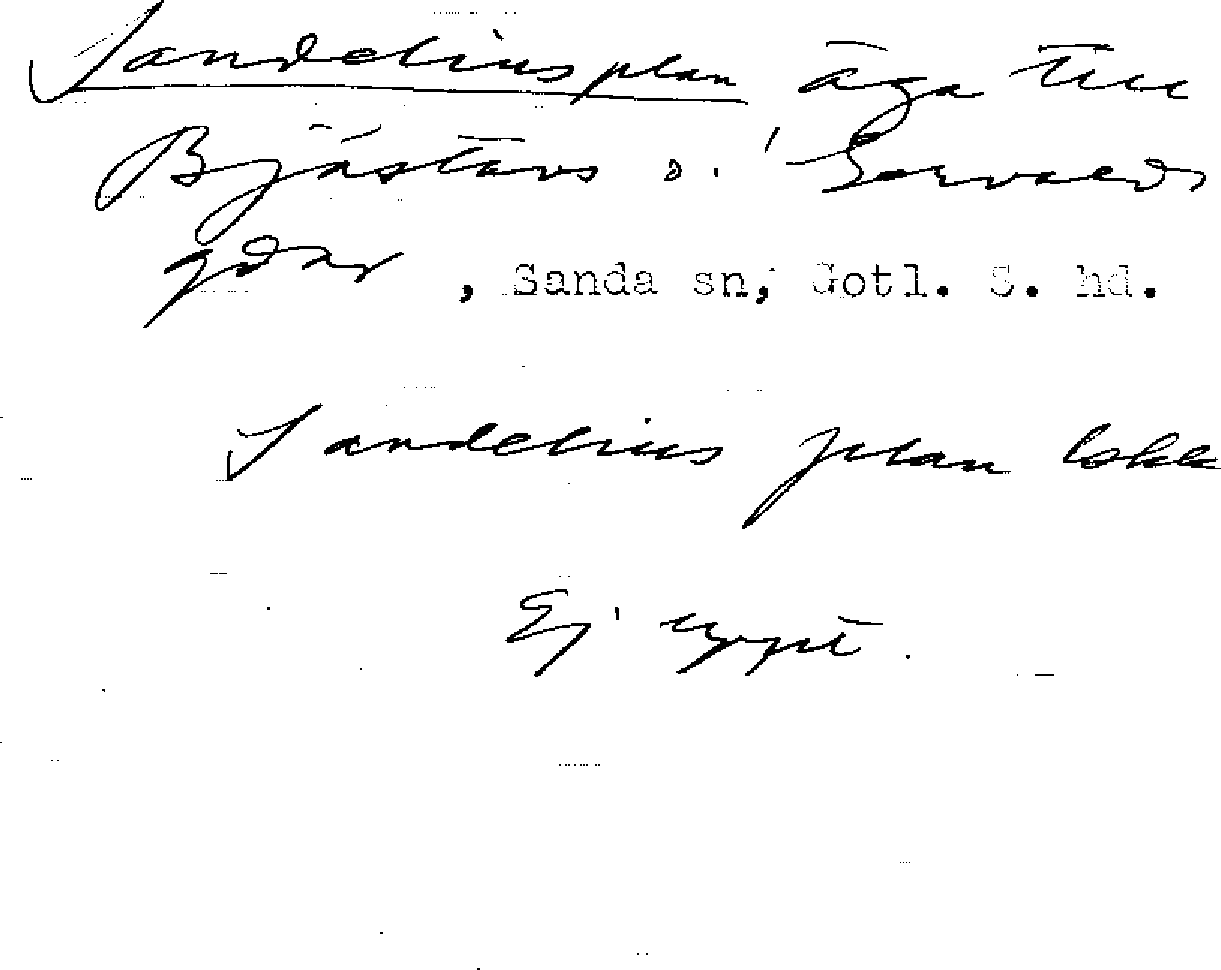 Sandeliusplan äga till
Bjästavs o. Servalds
gdar, Sanda sn, Gotl. S. hd.
Sandelius plan lokk
Ej uppt.